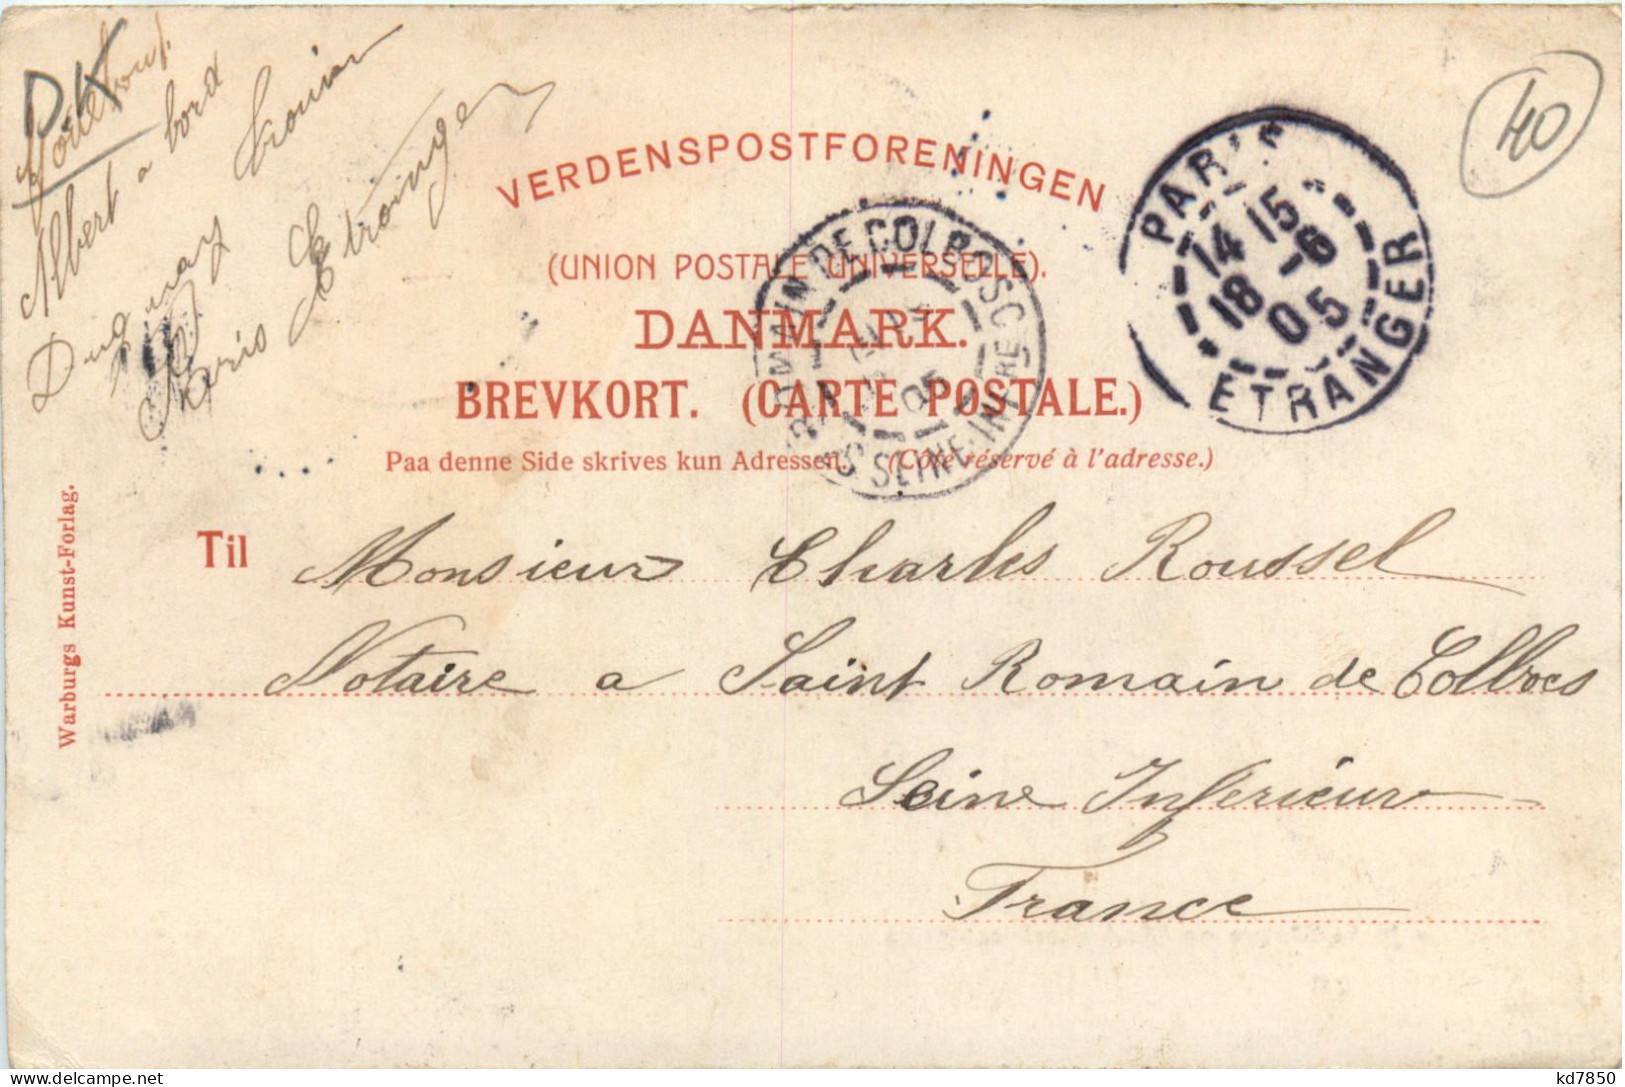 DK
Albert a bord
Duguay Trouin
Paris Etranger
40
VERDENSPOSTFORENINGEN
(UNION POSTALE UNIVERSELLE).
DANMARK.
BREVKORT. (CARTE POSTALE.)
Paa denne Side skrives kun Adressen. (Côté réservé à l'adresse.)
PARIS
14 15
18 -6
05
ETRANGER
ROMAIN DE COLBOSC
05
SEINE-INFRE
Warburgs Kunst-Forlag.
Til Monsieur Charles Roussel
Notaire a Saint Romain de Colbocs
Seine Inferieur
France
kd7850